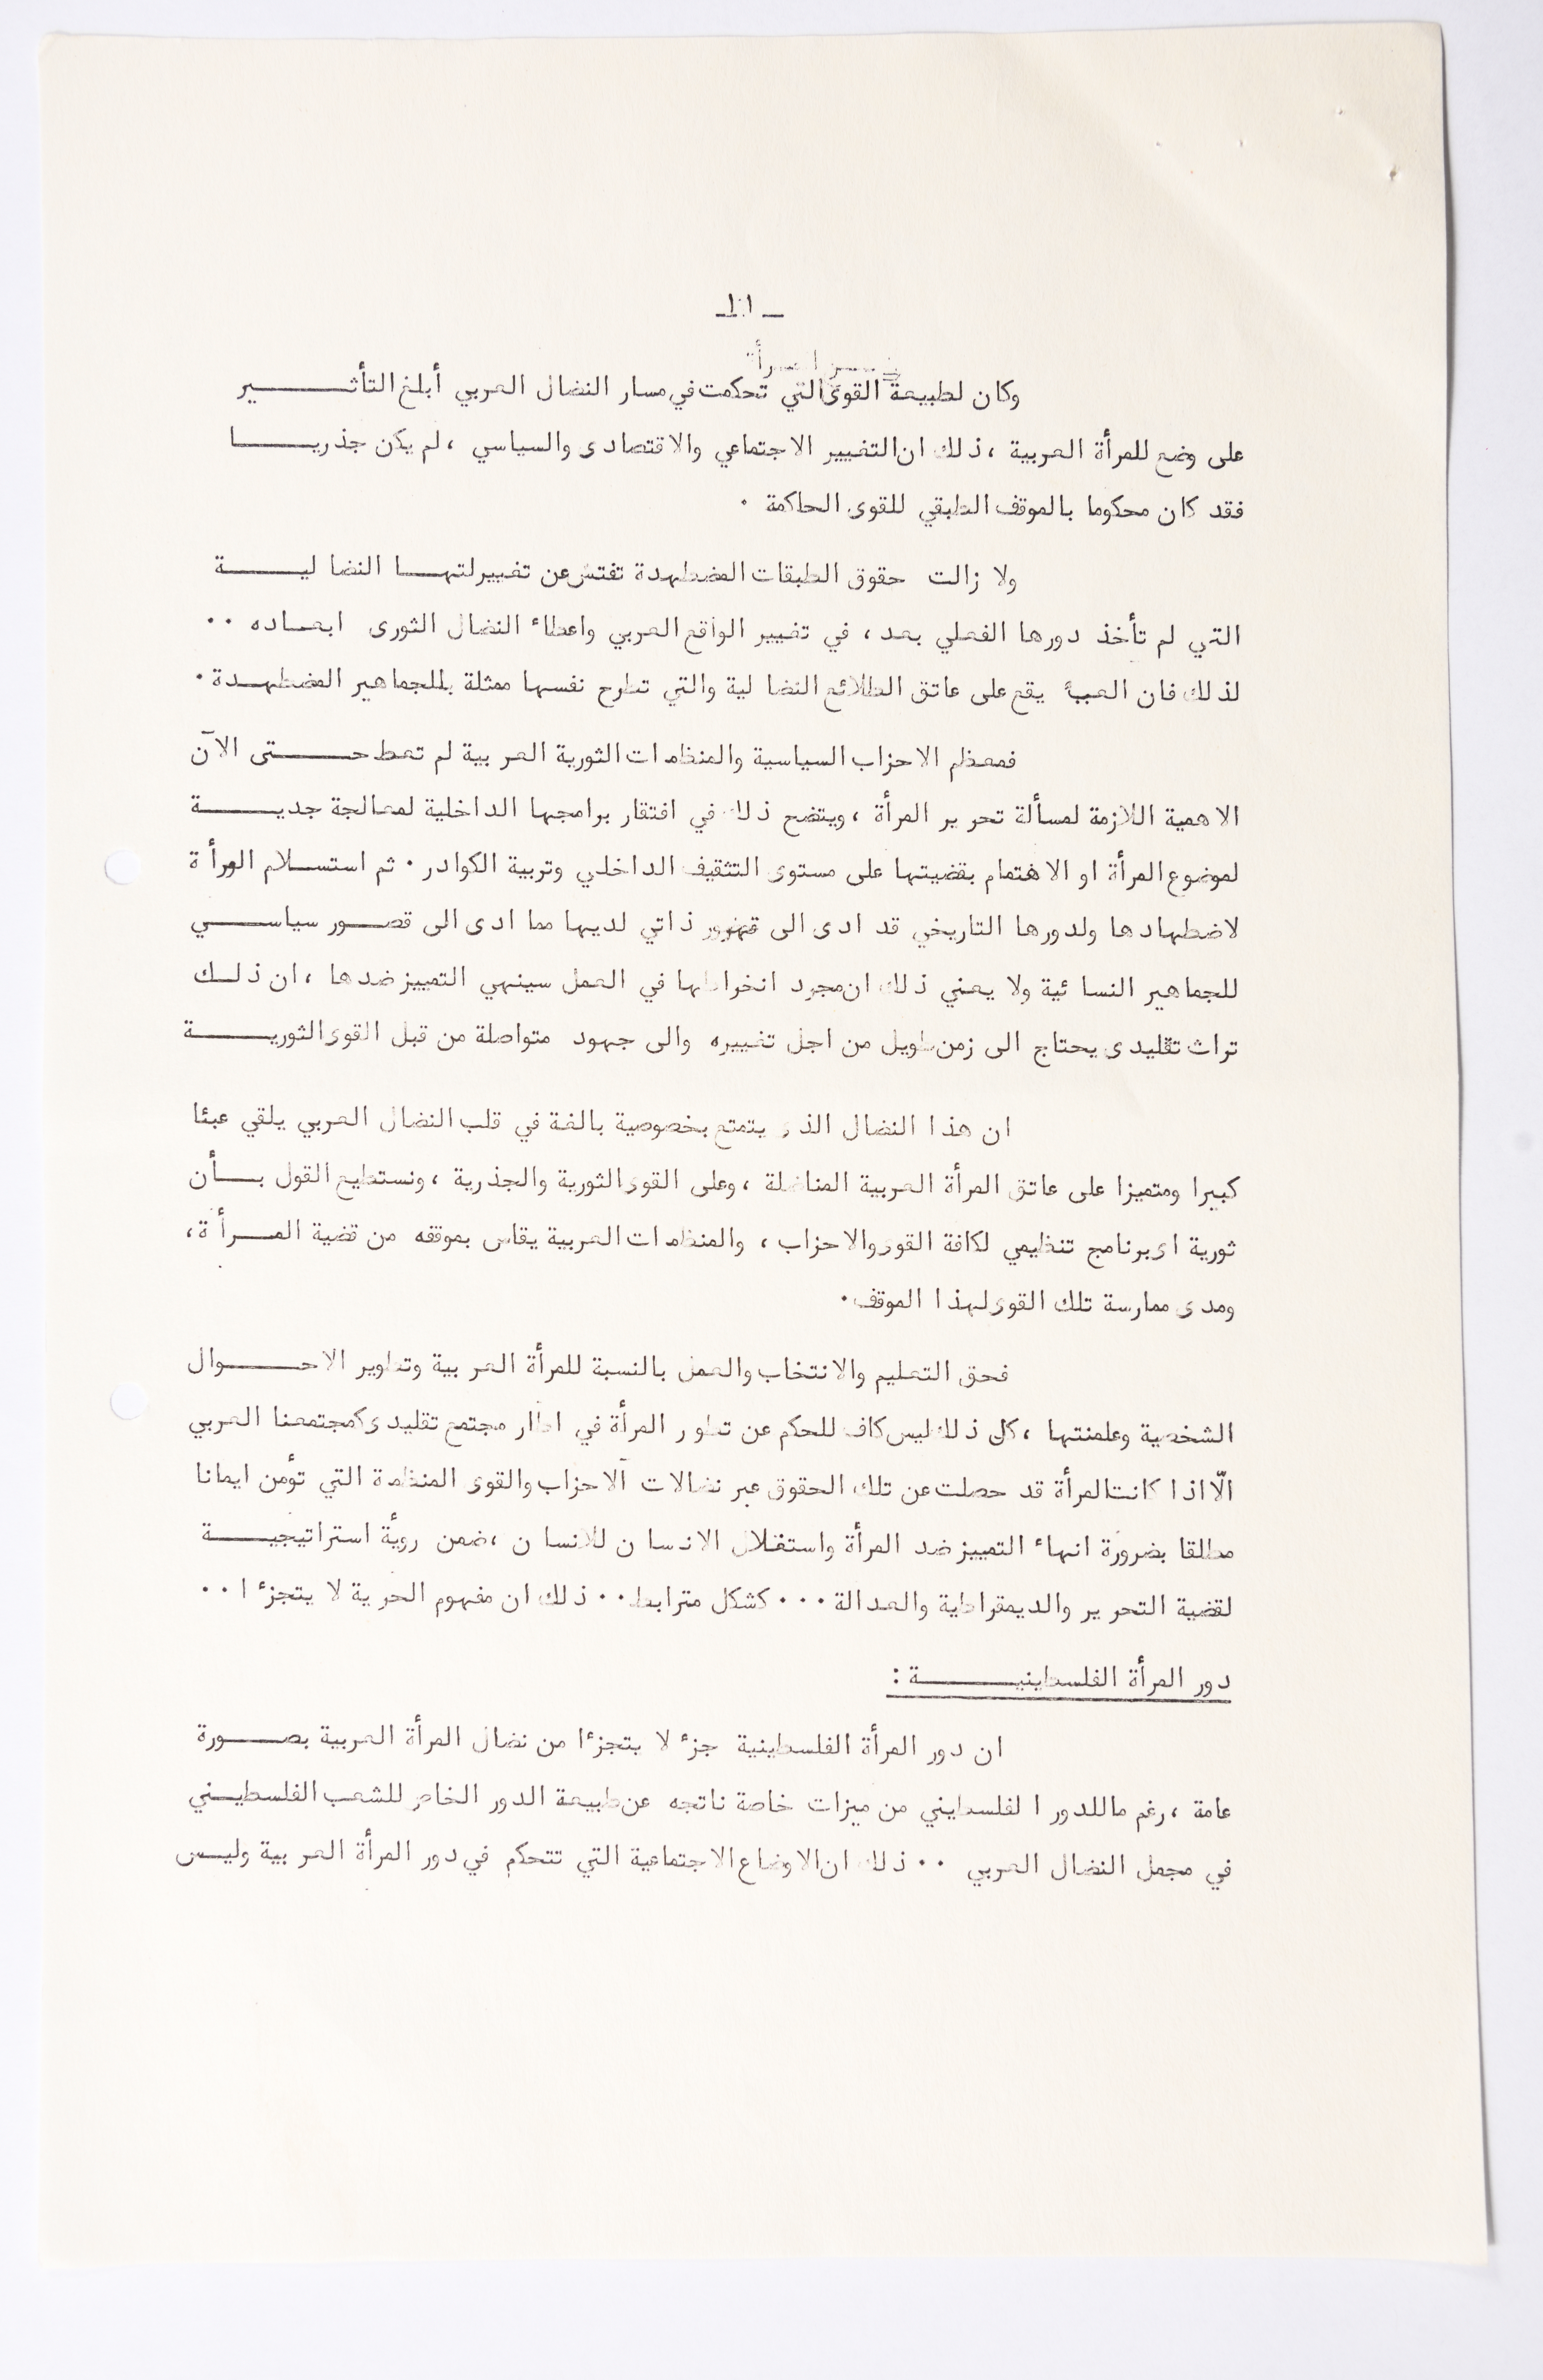 وكان لطبيعة القوى التي تحكمت في مسار النضال العربي أبلغ التأثير
على وضع للمرأة العربية ، ذلك ان التغيير الاجتماعي والاقتصادى والسياسي ، لم يكن جذريا
فقد كان محكوما بالموقف الطبقي للقوى الحاكمة .
ولا زالت حقوق الطبقات المضطهدة تفتش عن تغييرلتها النضالية
التي لم تأخذ دورها الفعلي بعد ، في تغيير الواقع العربي واعطاء النضال الثورى ابعاده ..
لذلك فان العبء يقع على عاتق الطلائع النضالية والتي تطرح نفسها ممثلة للجماهير المضطهدة .
فمعظم الاحزاب السياسية والمنظمات الثورية العربية لم تعط حتى الآن
الاهمية اللازمة لمسألة تحرير المرأة ، ويتضح ذلك في افتقار برامجها الداخلية لمعالجة جدية
لموضوع المرأة او الاهتمام بقضيتها على مستوى التثقيف الداخلي وتربية الكوادر . ثم استسلام المرأة
لاضطهادها ولدورها التاريخي قد ادى الى ذاتي لديها مما ادى الى قصور سياسي
للجماهير النسائية ولا يعني ذلك ان مجرد انخراطها في العمل سينهي التمييز ضدها ، ان ذلك
تراث تقليدى يحتاج الى زمن طويل من اجل تغييره والى جهود متواصلة من قبل القوى الثورية
ان هذا النضال الذى يتمتع بخصوصية بالغة في قلب النضال العربي يلقي عبئا
كبيرا ومتميزا على عاتق المرأة العربية المناضلة ، وعلى القوى الثورية والجذرية ، ونستطيع القول بأن
ثورية اى برنامج تنظيمي لكافة القوى والاحزاب ، والمنظمات العربية يقاس بموقفه من قضية المرأة ،
ومدى ممارسة تلك القوى لهذا الموقف .
فحق التعليم والانتخاب والعمل بالنسبة للمرأة العربية وتطوير الاحوال
الشخصية وعلمنتها ، كل ذلك ليس كاف للحكم عن تطور المرأة في اطار مجتمع تقليدى كمجتمعنا العربي
الّا اذا كانت المرأة قد حصلت عن تلك الحقوق عبر نضالات الاحزاب والقوى المنظمة التي تؤمن ايمانا
مطلقا بضرورة انهاء التمييز ضد المرأة واستغلال الانسان للانسان ، ضمن رويأة استراتيجية
لقضية التحرير والديمقراطية والعدالة ... كشكل مترابط .. ذلك ان مفهوم الحرية لا يتجزء ا ..
دور المرأة الفلسطينية :
ان دور المرأة الفلسطينية جزء لا يتجزءا من نضال المرأة العربية بصورة
عامة ، رغم ماللدور الفلسطيني من ميزات خاصة ناتجه عن طبيعة الدور الخاص للشعب الفلسطيني
في مجمل النضال العربي .. ذلك ان الاوضاع الاجتماعية التي تتحكم في دور المرأة العربية وليس